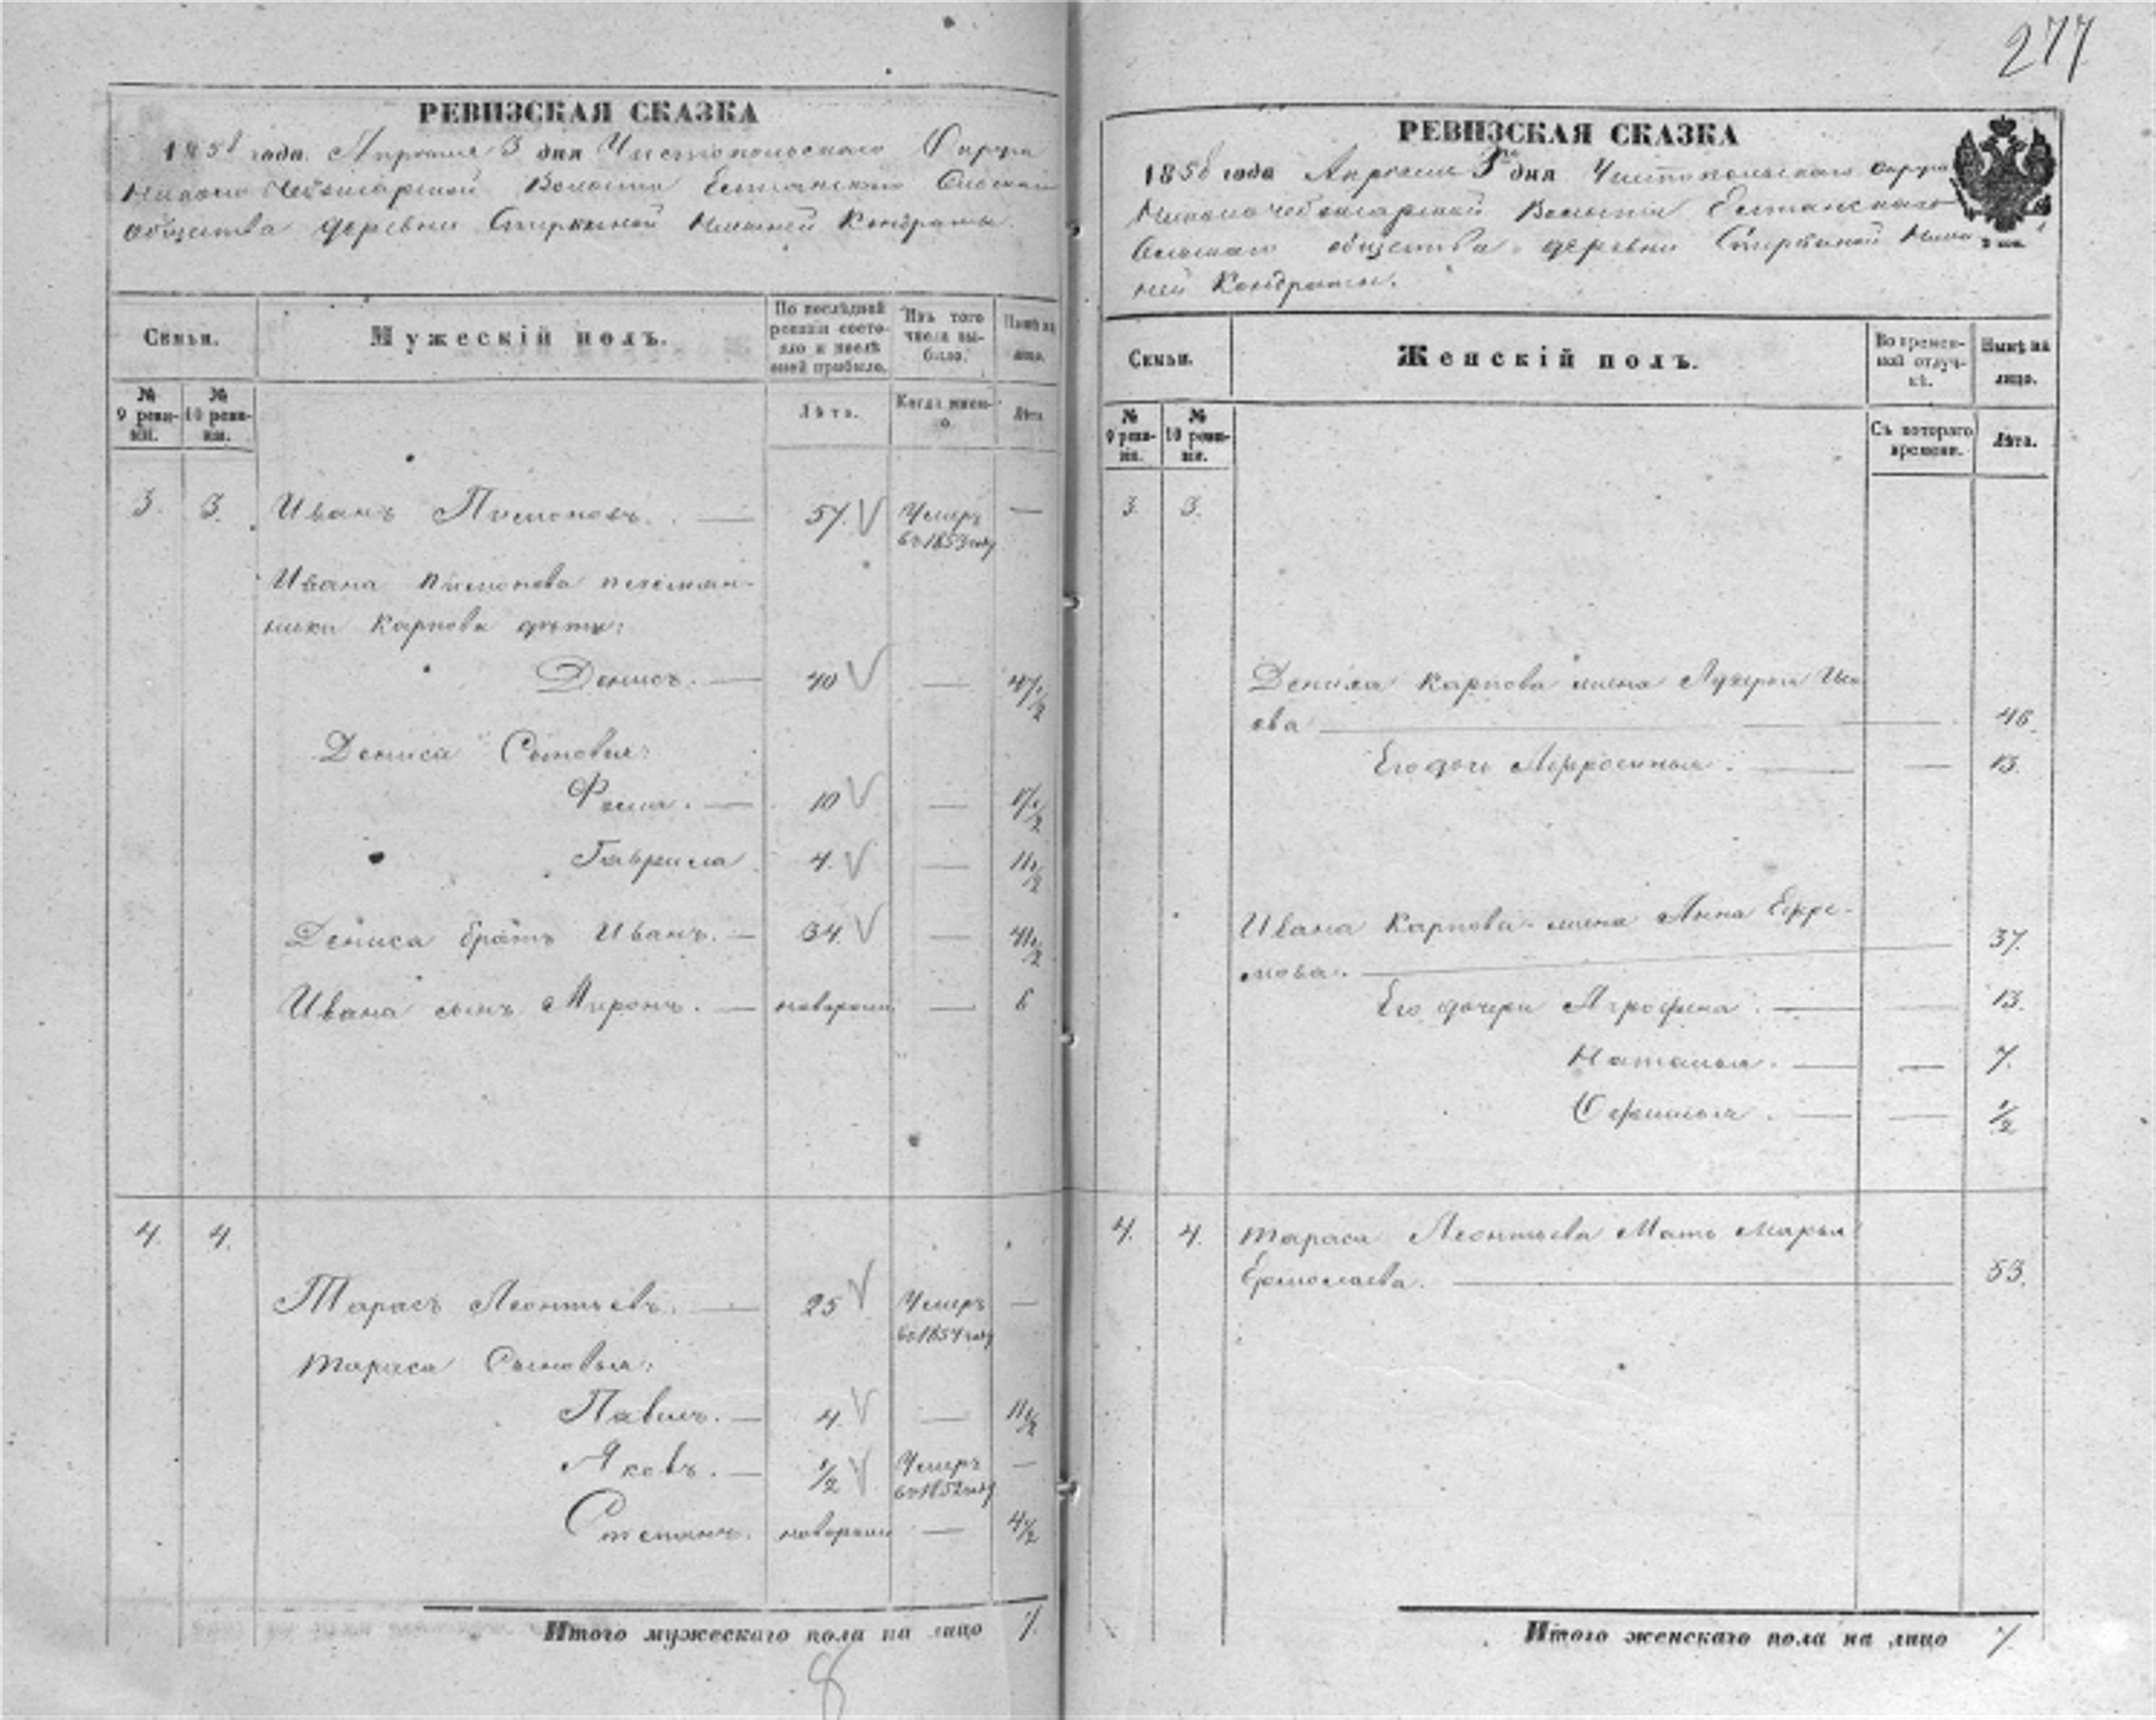 277
РЕВИЗСКАЯ СКАЗКА
1858 года Апреля 3 дня Чистопольскаго Округа
Волости Сельскаго
общества деревни Нижней Кондраты.
Семьи.
Мужескій полъ.
По послѣдней ревизіи состояло и послѣ оной прибыло.
Изъ того числа выбыло.
Нынѣ на лицо.
№ 9 ревизіи.
№ 10 ревизіи.
Лѣта.
Когда именно.
Лѣта
3. 3. Иванъ Пимоновъ. — 57. Умеръ —
въ 1853 году
Ивана Пимонова племян-
ники Карпова дѣти:
Денисъ. — 40 — 47 1/2
Дениса Сыновья:
Фома. — 10 — 17 1/2
Гаврила 4. — 11 1/2
Дениса братъ Иванъ. — 34. — 41 1/2
Ивана сынъ Миронъ. — новорожд — 6
4. 4.
Тарасъ Леонтьевъ. — 25 Умеръ —
въ 1854 году
Тараса Сыновья:
Павелъ. — 4. — 11 1/2
Яковъ. — 1/2 Умеръ —
въ 1852 году
Степанъ. новорожд — 4 1/2
Итого мужескаго пола на лицо 7.
8
РЕВИЗСКАЯ СКАЗКА
1858 года Апреля 3го дня Чистопольскаго округа
Волости
Сельскаго общества деревни Ниж-
ней Кондраты.
Семьи.
Женскій полъ.
Во временной отлучкѣ.
Нынѣ на лицо.
№ 9 ревизіи.
№ 10 ревизіи.
Съ котораго времени.
Лѣта.
3. 3.
Дениса Карпова жена Лукерья
ева — — 46.
Его дочь Афросинья. — — 13.
Ивана Карпова жена Анна Ефре-
мова. — 37.
Его дочери Аграфена. — — 13.
Наталья. — — 7.
— — 1/2
4. 4. Тараса Леонтьева Мать Марья
Ермолаева. — 53.
Итого женскаго пола на лицо 7